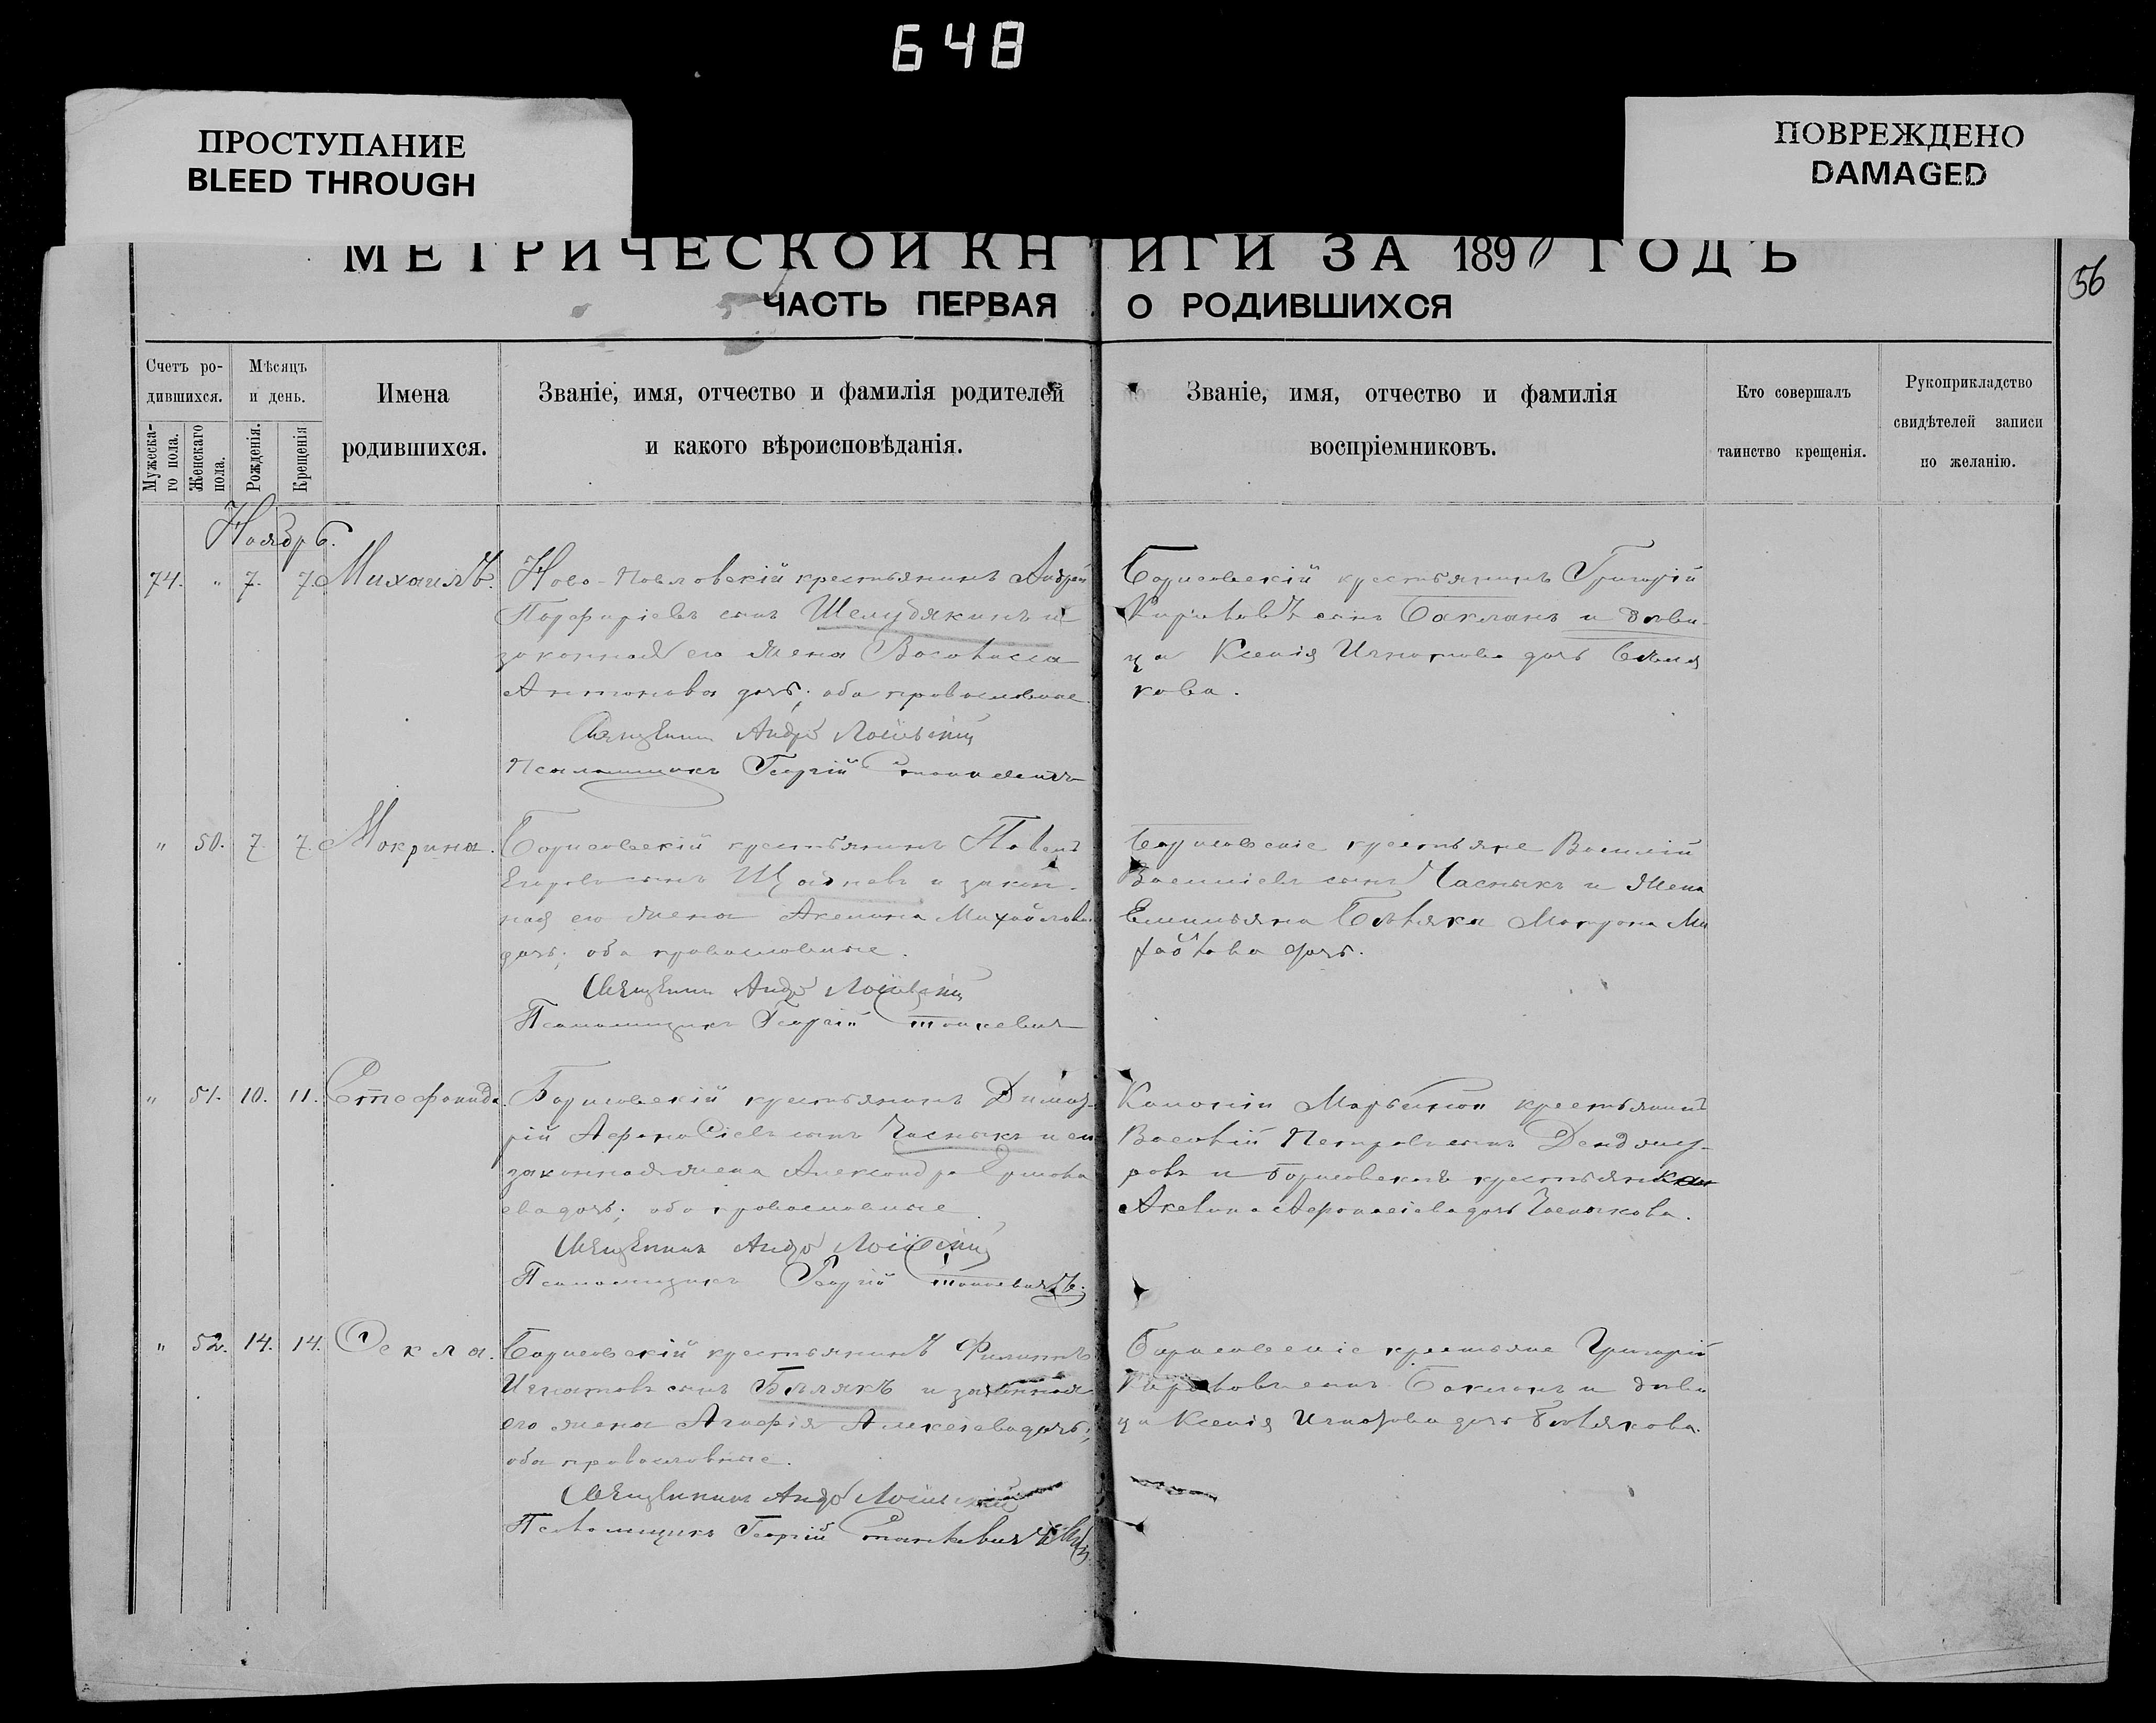 648
ПРОСТУПАНИЕ
BLEED THROUGH
ПОВРЕЖДЕНО
DAMAGED
МЕТРИЧЕСКОЙ КНИГИ ЗА 1890 ГОДЪ
56
ЧАСТЬ ПЕРВАЯ О РОДИВШИХСЯ
Счетъ ро-
дившихся.
Мужеска-
го пола.
Женскаго
пола.
Мѣсяцъ
и день.
Рожденія.
Крещенія
Имена
родившихся.
Званіе, имя, отчество и фамилія родителей
и какого вѣроисповѣданія.
Званіе, имя, отчество и фамилія
воспріемниковъ.
Кто совершалъ
таинство крещенія.
Рукоприкладство
свидѣтелей записи
по желанію.
Ноябрь.
74. " 7. 7. Михаилъ.
Ново-Павловскій крестьянинъ Андрей
Порфиріевъ сынъ Шелудякинъ и
законная его жена Василисса
Антонова дочь; оба православные.
Священникъ Андрей
Псаломщикъ Георгій Станкевичъ
Борисовскій крестьянинъ Григорій
Кириловъ сынъ Бакланъ и дѣви-
ца Ксенія Игнатова дочь
кова.
" 50. 7. 7. Мокрина.
Борисовскій крестьянинъ Павелъ
Егоровъ сынъ и закон-
ная его жена Акилина Михайлова
дочь; оба православные.
Священникъ Андрей
Псаломщикъ Георгій Станкевичъ
Борисовскіе крестьяне Василій
Василіевъ сынъ Часныкъ и жена
Емильяна Бѣляка Матрона Ми
хайлова дочь.
" 51. 10. 11. Стефанида.
Борисовскій крестьянинъ Димит-
рій Афанасіевъ сынъ Часныкъ и его
законная жена Александра
ева дочь; оба православные.
Священникъ Андрей
Псаломщикъ Георгій Станкевичъ.
Колоніи крестьянинъ
Василій Петровъ сынъ
ровъ и Борисовская крестьянка
Акилина Афанасіева дочь Часныкова.
" 52. 14. 14. Ѳекла.
Борисовскій крестьянинъ Филиппъ
Игнатовъ сынъ Бѣлякъ и законная
его жена Агафія Алексіева дочь;
оба православные.
Священникъ Андрей
Псаломщикъ Георгій Станкевичъ
Борисовскіе крестьяне Григорій
Кириловъ сынъ Бакланъ и дѣви
ца Ксенія Игнатова дочь Бѣлякова.